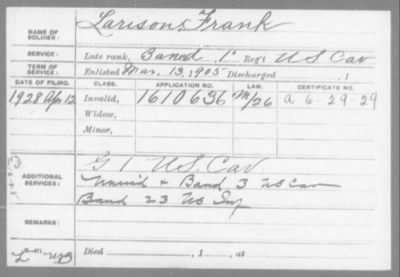 NAME OF SOLDIER: Larison, Frank
SERVICE: Late rank, Band, 1" Reg't US Cav
TERM OF SERVICE: Enlisted Mar. 13, 1905 Discharged , 1
DATE OF FILING. CLASS. APPLICATION NO. LAW. CERTIFICATE NO.
1928 Apr 12 Invalid, 1610636 a-6-29-29
Widow,
Minor,
G 1 US. Cav
ADDITIONAL SERVICES: + Band 3 US Cav
Band 23 US Inf
REMARKS:
Died , 1 , at